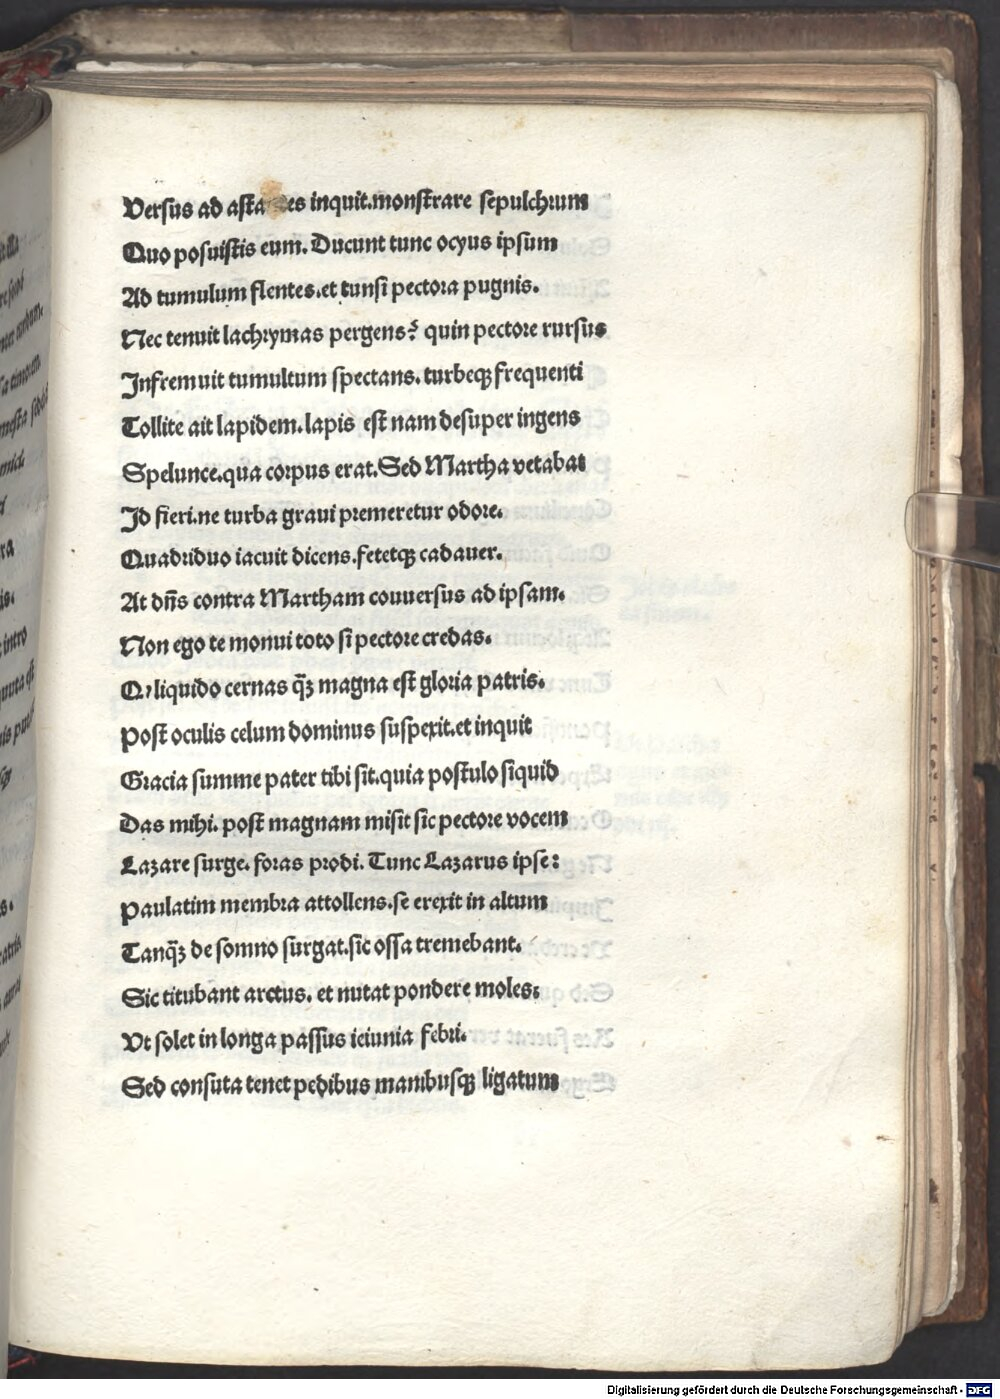 Versus ad asta es inquit.monstrare sepulchrum
Quo posuistis eum. Ducunt tunc ocyus ipsum
Ad tumulum flentes.et tunsi pectora pugnis.
Nec tenuit lachrymas pergens? quin pectore rursus
Infremuit tumultum spectans. turbeqꝫ frequenti
Tollite ait lapidem.lapis est nam desuper ingens
Spelunce.qua corpus erat.Sed Martha vetabat
Id fieri.ne turba graui premeretur odore.
Quadriduo iacuit dicens.fetetqꝫ cadauer.
At dn̄s contra Martham couuersus ad ipsam.
Non ego te monui toto si pectore credas.
Qꝛ liquido cernas qꝫ̄ magna est gloria patris.
Post oculis celum dominus suspexit.et inquit
Gracia summe pater tibi sit.quia postulo siquid
Das mihi. post magnam misit sic pectore vocem
Lazare surge. foras prodi. Tunc Lazarus ipse:
Paulatim membra attollens.se erexit in altum
Tanqꝫ̄ de somno surgat.sic ossa tremebant.
Sic titubant arctus. et nutat pondere moles.
Vt solet in longa passus ieiunia febri.
Sed consuta tenet pedibus manibusqꝫ ligatum
Digitalisierung gefördert durch die Deutsche Forschungsgemeinschaft - DFG